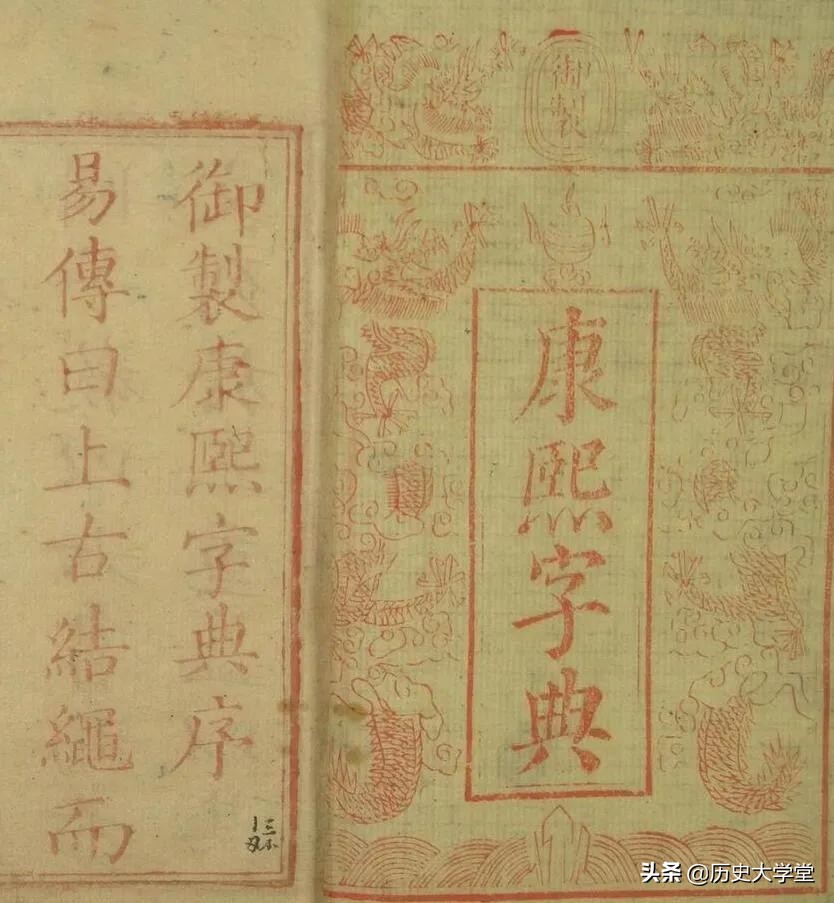 御製
康熙字典
御製康熙字典序
易傳曰上古結繩而
头条 @历史大学堂